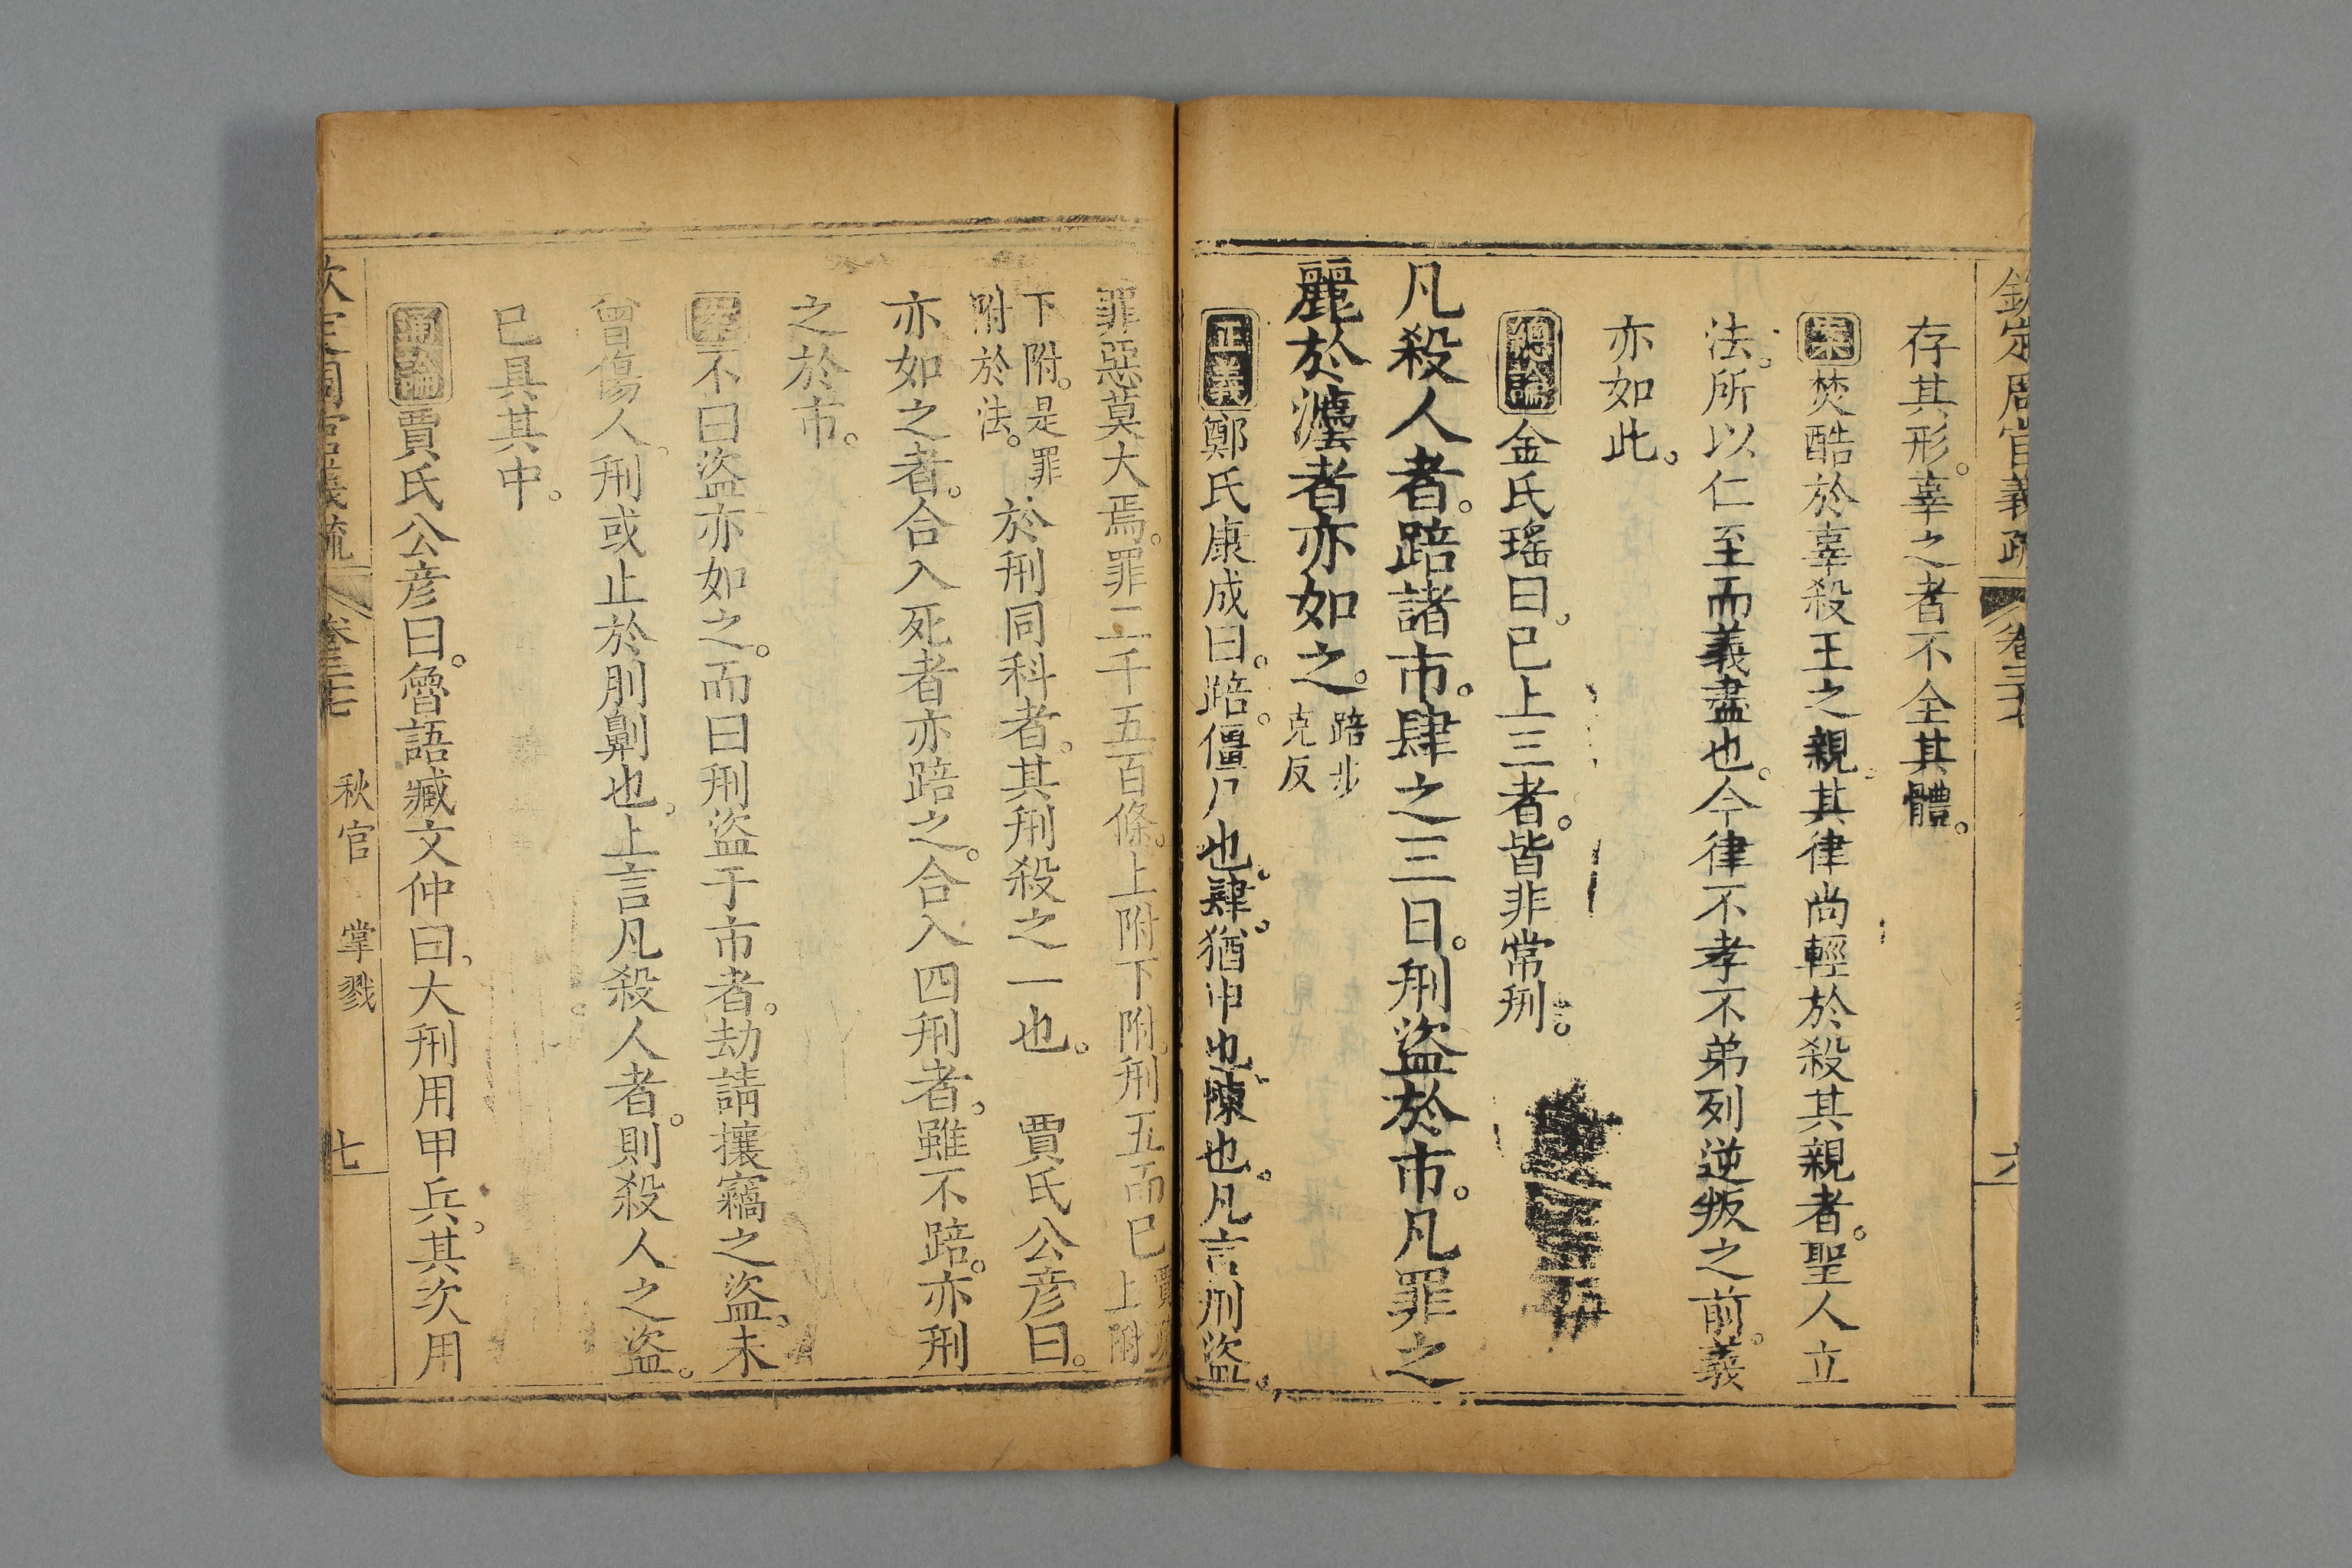 欽定周官義疏 卷三十七 六
存其形。辜之者不全其體。
案焚酷於辜殺王之親。其律尚輕於殺其親者。聖人立
法。所以仁至而義盡也。今律不孝不弟列逆叛之前。義
亦如此。
總論金氏瑤曰。已上三者。皆非常刑。
凡殺人者。踣諸市。肆之三日。刑盜於市。凡罪之
麗於灋者亦如之。踣步克反
正義鄭氏康成曰。踣。僵尸也。肆。猶申也。陳也。凡言刑盜。
罪惡莫大焉。罪二千五百條。上附下附。刑五而已賈疏上附
下附。是罪附於法。於刑同科者。其刑殺之一也。 賈氏公彥曰。
亦如之者。合入死者亦踣之。合入四刑者。雖不踣。亦刑
之於市。
案不曰盜亦如之。而曰刑盜于市者。劫請攘竊之盜。未
曾傷人。刑或止於刖劓也。上言凡殺人者。則殺人之盜。
已具其中。
通論賈氏公彥曰。魯語臧文仲曰。大刑用甲兵。其次用
欽定周官義疏 卷三十七 秋官 掌戮 七